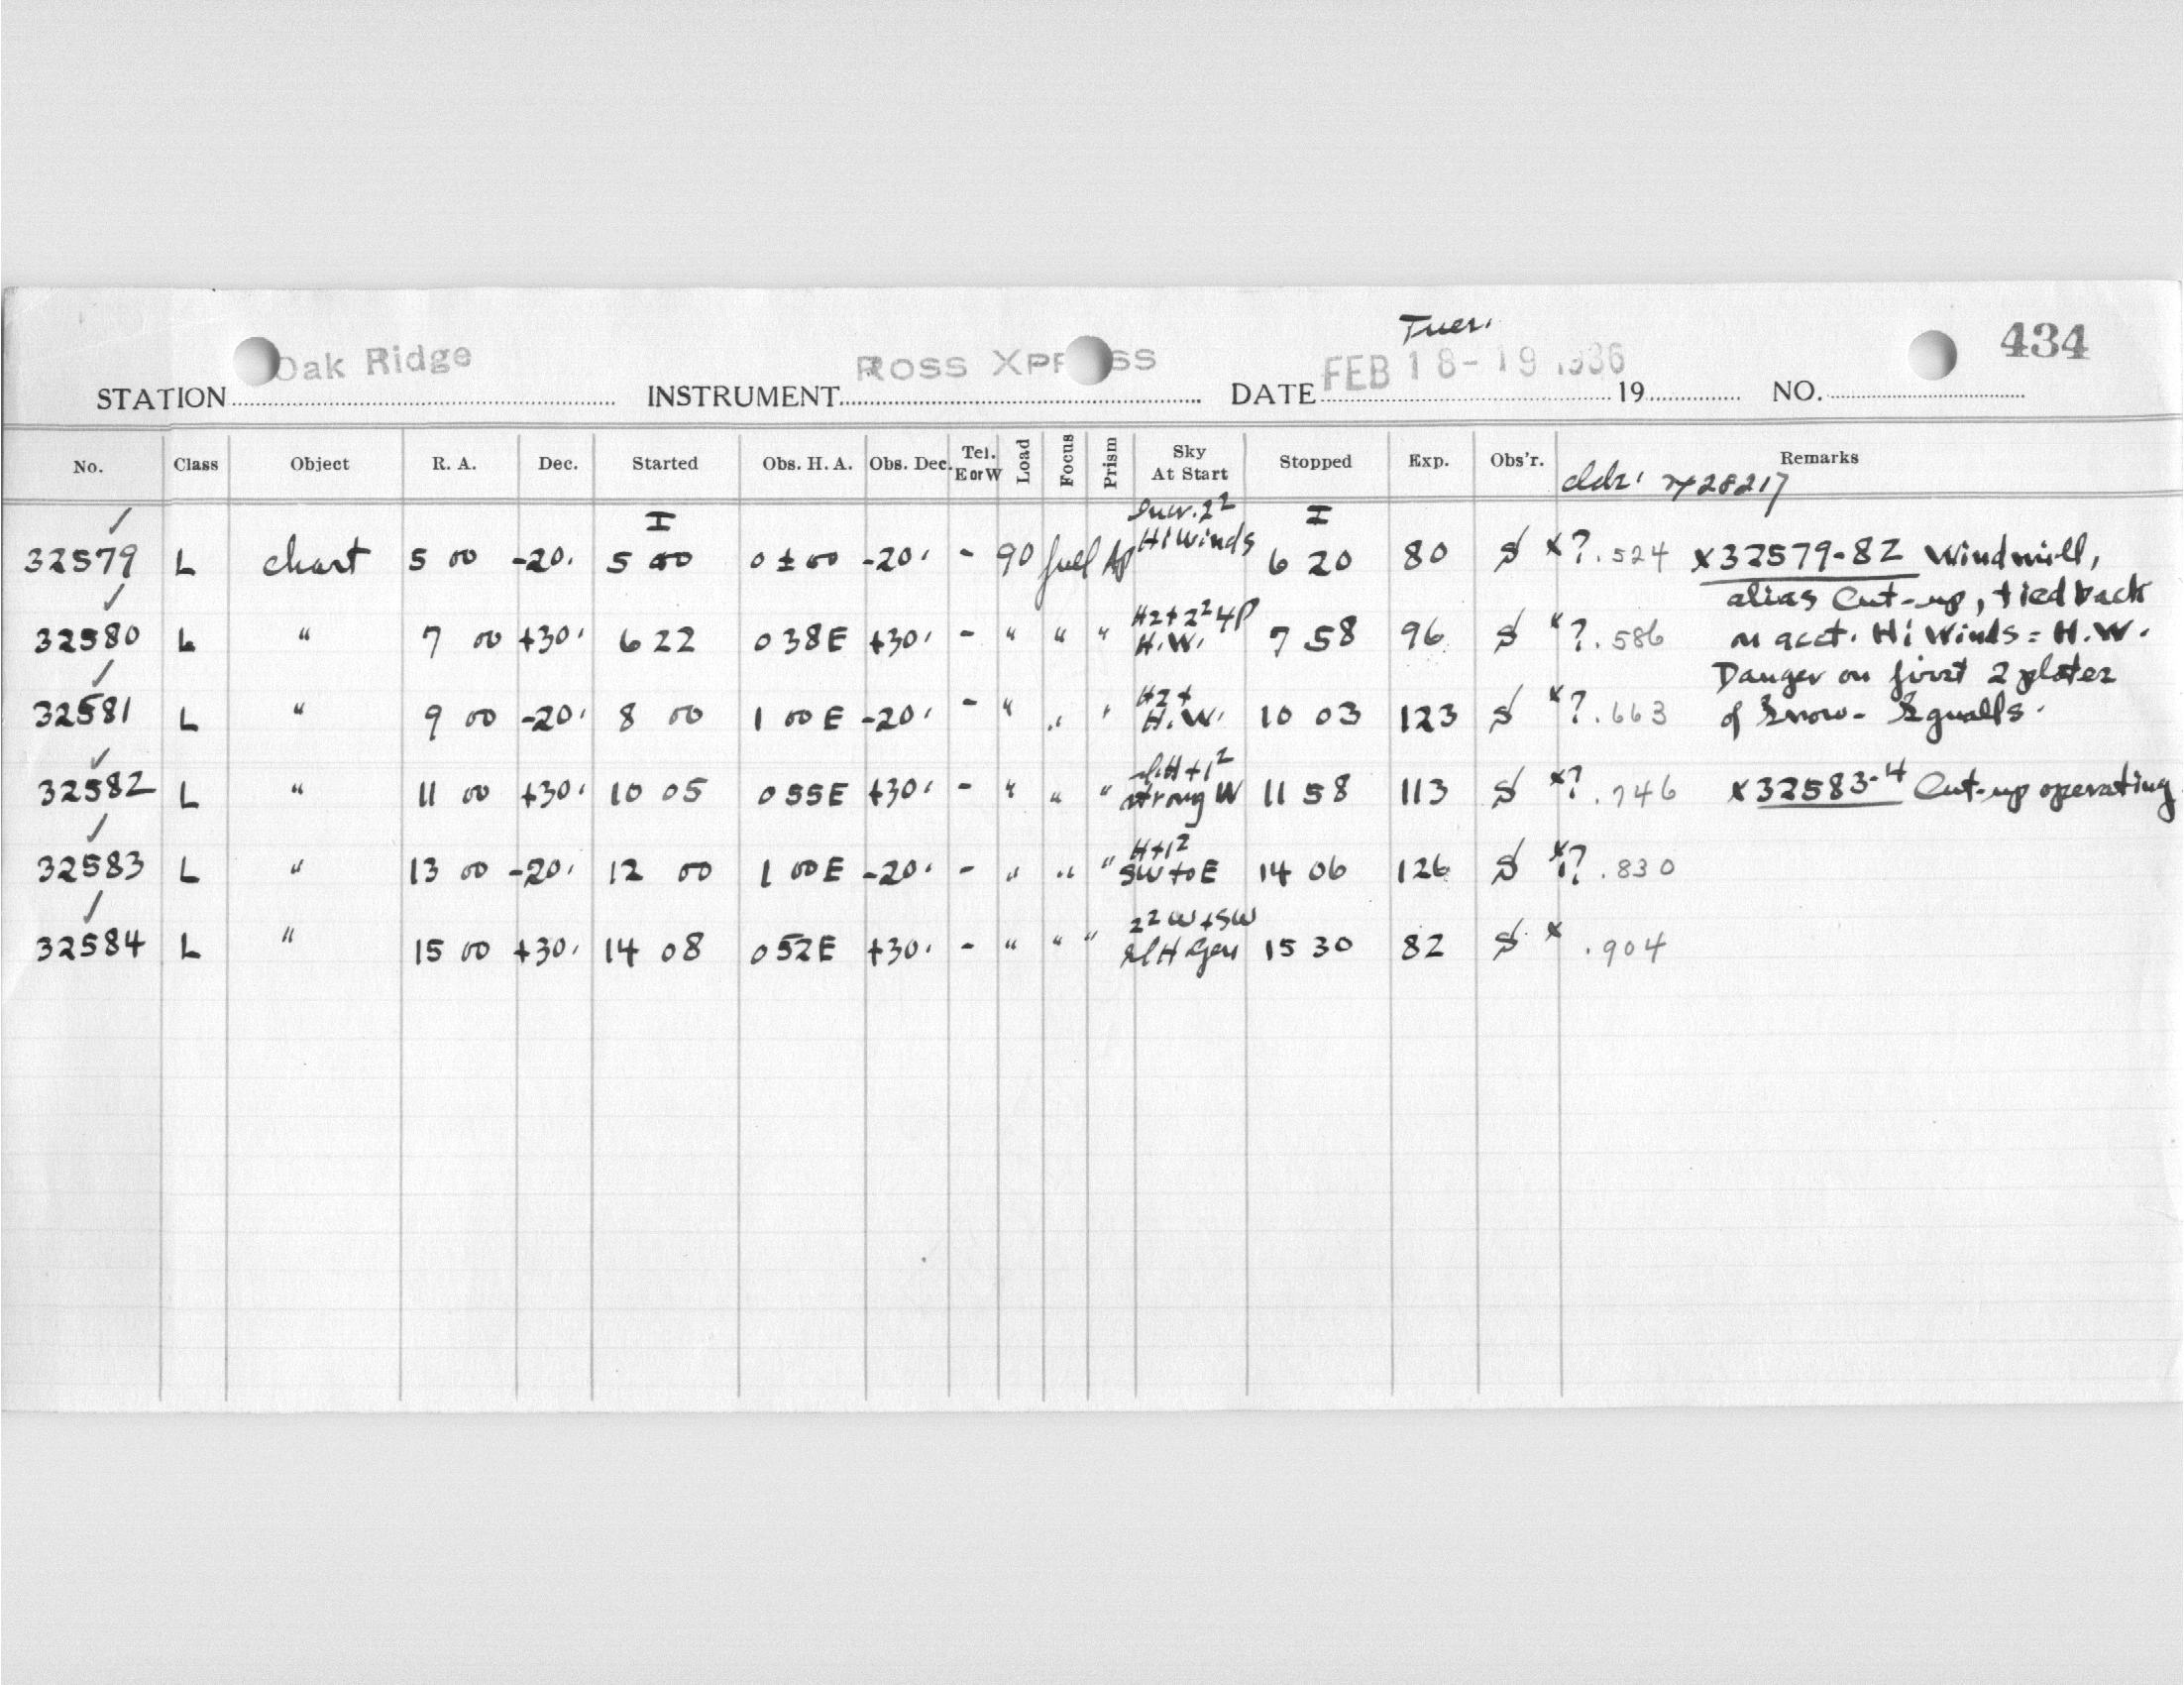 Tues.
434
Oak Ridge ROSS XPRESS FEB 18-19 1936
STATION INSTRUMENT DATE 19 NO.
No. Class Object R. A. Dec. Started Obs. H. A. Obs. Dec. Tel. E or W Load Focus Prism Sky At Start Stopped Exp. Obs'r. Remarks
28217
I 2² I
32579 L chart 5 00 -20. 5 00 0 ± 00 -20. - 90 Hi Winds 6 20 80 S x?.524 x32579-82 Windmill,
alias Cut-up, tied back
Hz+2²4P
32580 L " 7 00 +30. 6 22 0 38E +30. - " " " H.W. 7 58 96 S "?.586 on acct. Hi Winds = H.W.
Danger on first 2 plates
Hz+
32581 L " 9 00 -20. 8 00 1 00 E -20. - " " " H.W. 10 03 123 S x?.663 of Snow-Squalls.
sl.H+1²
32582 L " 11 00 +30. 10 05 0 55E +30. - " " " strong W 11 58 113 S x?.746 x32583-4 Cut-up operating
H+1²
32583 L " 13 00 -20. 12 00 1 00E -20. - " " " SW to E 14 06 126 S x?.830
2² W+SW
32584 L " 15 00 +30. 14 08 0 52E +30. - " " " sl H Gen 15 30 82 S x .904